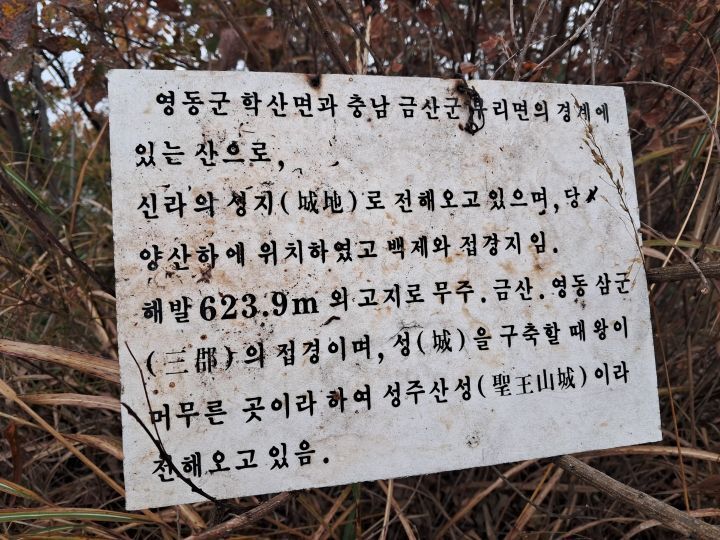 영동군 학산면과 충남 금산군 부리면의 경계에
있는 산으로,
신라의 성지(城地)로 전해오고 있으며, 당시
양산하에 위치하였고 백제와 접경지 임.
해발 623.9m 의 고지로 무주.금산.영동 삼군
(三郡)의 접경이며, 성(城)을 구축할 때 왕이
머무른 곳이라 하여 성주산성(聖王山城)이라
전해오고 있음.